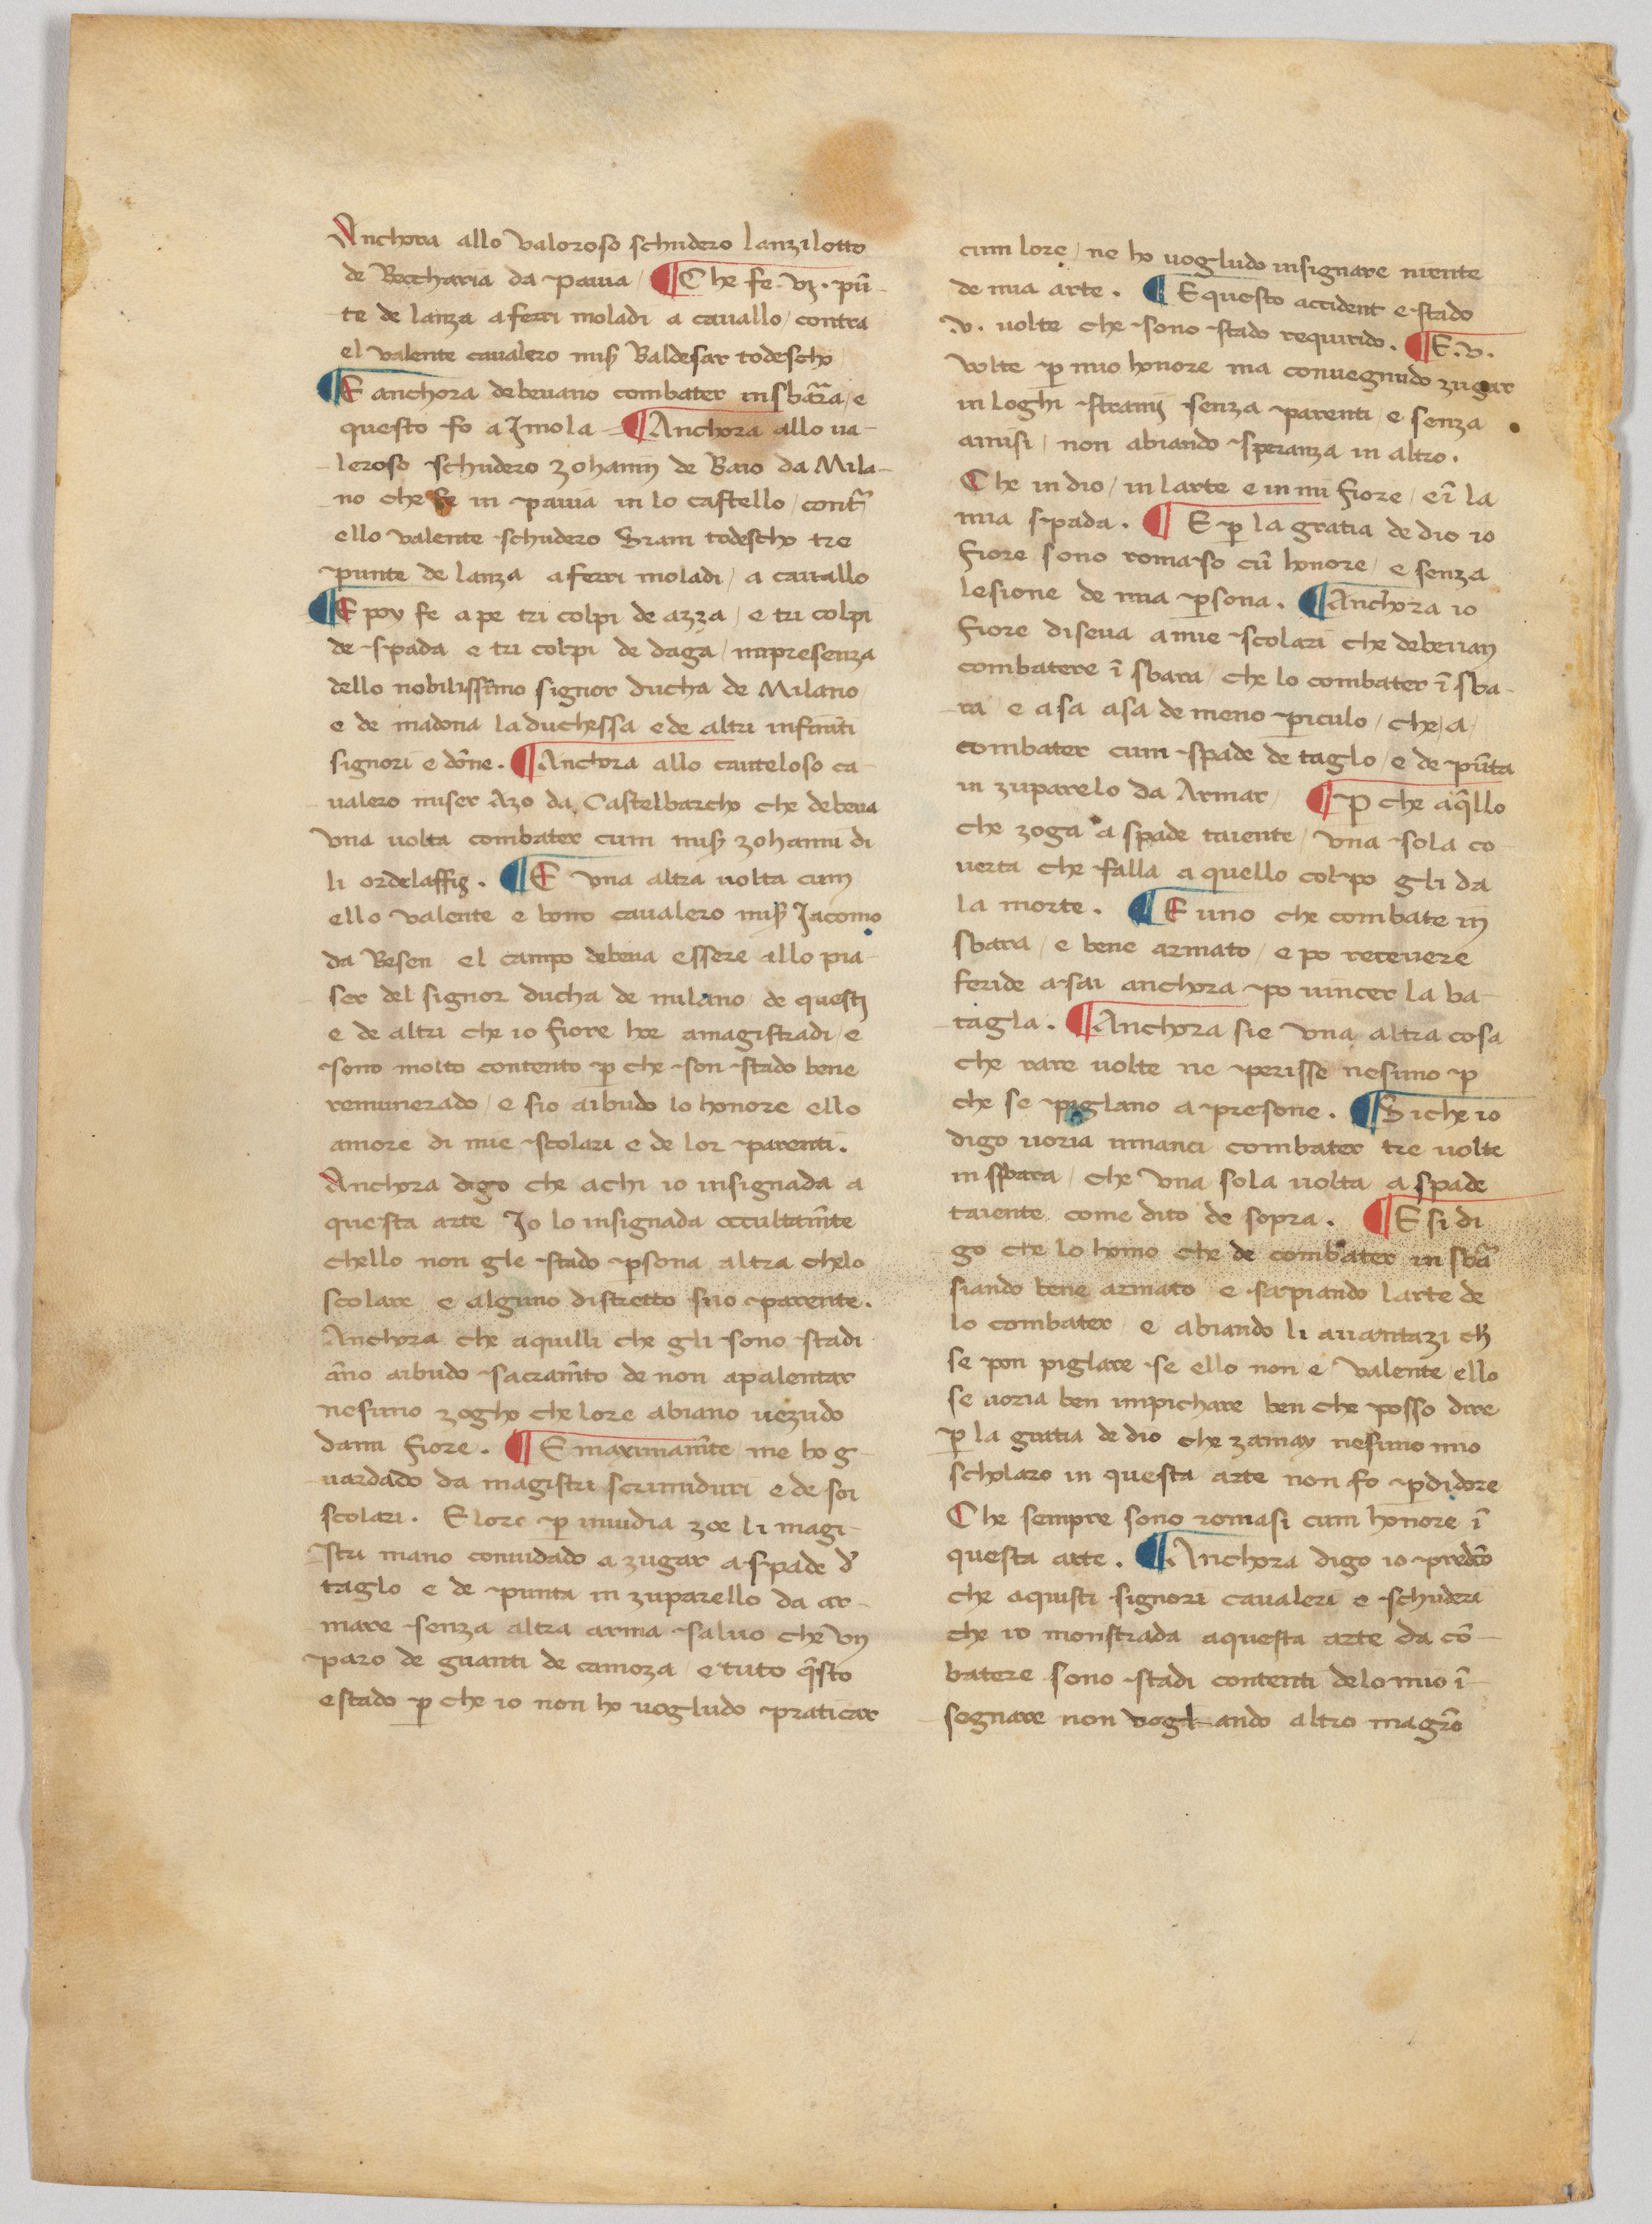 Anchora allo valoroso schudero lanzilotto
de Beccharia da pavia / ¶ Che fe . vj . pũ-
te de lanza a ferri moladi a cavallo / contra
el valente cavalero mis̃ Baldesar todescho /
¶ E anchora debevano combater in sbãra / e
questo fo a Imola = ¶ Anchora allo va-
leroso schudero zohanin de Baio da Mila-
no che fe in pavia in lo castello / contᷓ
ello valente schudero Gram todescho tre
punte de lanza a ferri moladi / a cavallo
¶ E poy fe a pe tri colpi de azza / e tri colpi
de spada e tri colpi de daga / inpresenza
dello nobilissimo signor ducha de Milano /
e de madona la duchessa e de altri infiniti
signori e dõne . ¶ Anchora allo cauteloso ca-
valero miser Azo da Castelbarcho che debeva
una volta combater cum mis̃ zohanni di
li ordelaffij . ¶ E una altra volta cum
ello valente e bono cavalero mis̃ Jacomo
da Besen el campo debeva essere allo pia-
ser del signor ducha de milano de questi
e de altri che io fiore hoe amagistradi / e
sono molto contento ꝑ che son stado bene
remunerado / e sio aibudo lo honore / ello
amore di mie scolari e de lor parenti .
Anchora digo che a chi io insignada a
questa arte Io lo insignada occultam̃te
chello non gle stado ꝑsona altra chelo
scolare e alguno distretto suo parente .
Anchora che aquilli che gli sono stadi
ãno aibudo sacram̃to de non apalentar
nesuno zogho che lore abiano vezudo
dami fiore . ¶ E maximam̃te me ho g-
uardado da magistri scrimiduri e de soi
scolari . E lore ꝑ invidia zoe li magi-
stri mano convidado a zugar a spade d̃
taglo e de punta in zuparello da ar-
mare senza altra arma salvo che un
paro de guanti de camoza / e tuto q̃sto
e stado ꝑ che io non ho vogludo praticar
cum lore / ne ho vogludo insignare niente
de mia arte . ¶ E questo accident e stado
.v. volte che sono stado requirido . ¶ E .v.
volte ꝑ mio honore ma convegnudo zugar
in loghi stranij senza parenti / e senza
amisi / non abiando speranza in altro .
Che in dio / in larte e in mi fiore / e ĩ la
mia spada . ¶ E ꝑ la gratia de dio io
fiore sono romaso cũ honore / e senza
lesione de mia ꝑsona . ¶ Anchora io
fiore diseva a mie scolari che debevan
combatere ĩ sbara / che lo combater ĩ sba-
ra e asa asa de meno ꝑiculo / che / a /
combater cum spade de taglo / e de pũta
in zuparelo da Armar / ¶ ꝑ che aq̃llo
che zoga a spade taiente / una sola co-
verta che falla a quello colpo gli da
la morte . ¶ E uno che combate in
sbara / e bene armato / e po recevere
feride asai anchora po vincer la ba-
tagla . ¶ Anchora sie una altra cosa
che rare volte ne perisse nesuno ꝑ
che se piglano a presone . ¶ Siche io
digo voria innanci combater tre volte
in sbara / che una sola volta a spade
taiente come dito de sopra . ¶ E si di
go che lo homo che de combater in sbãa
siando bene armato e sapiando larte de
lo combater / e abiando li avantazi ch̃
se pon piglare se ello non e valente / ello
se voria ben impichare ben che posso dire
ꝑ la gratia de dio che zamay nesuno mio
scholaro in questa arte non fo ꝑdidore
Che sempre sono romasi cum honore ĩ
questa arte . ¶ Anchora digo io predc̃o
che aquisti signori cavaleri e schuderi
che io monstrada aquesta arte da cõ-
batere sono stadi contenti delo mio ĩ-
sognare non vogliando altro magr̃o